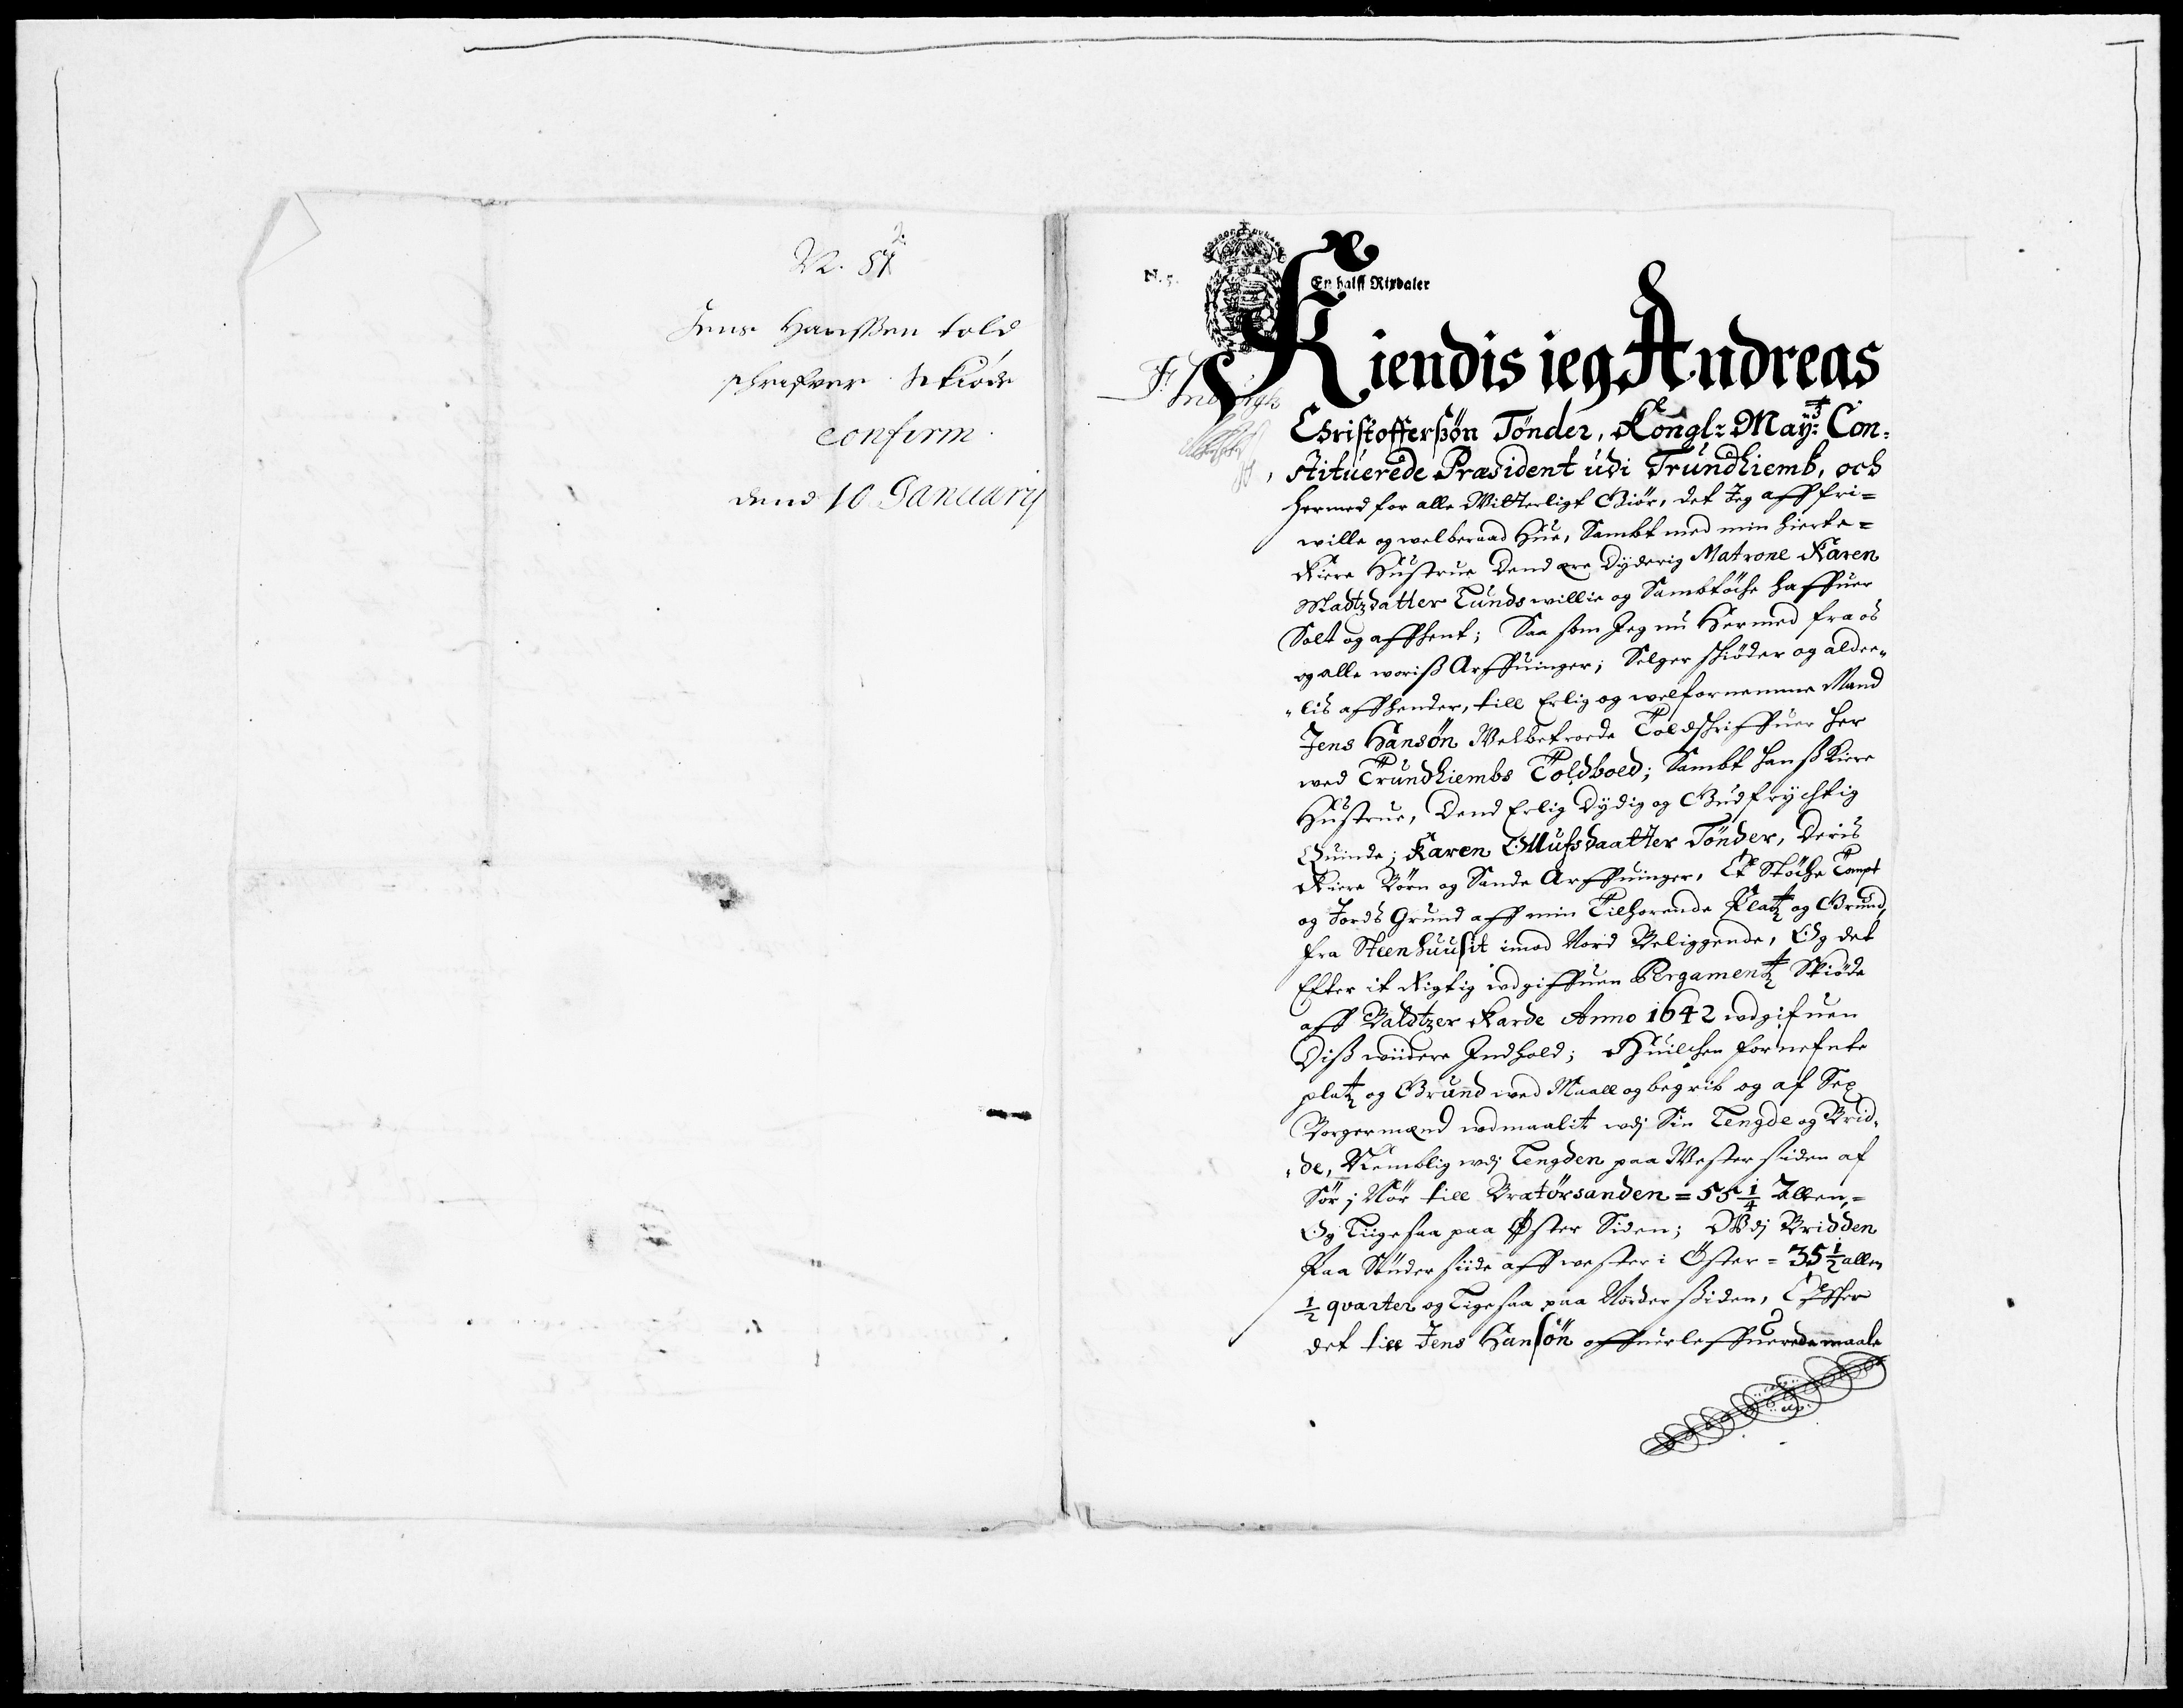 N. 512.
Jens Hanssen told
schrifver Skiöde
confirm.
dend 10 January
N. 5.
En halff Rixdaler
Kiendis ieg Andreas
Christofferßøn Tønder, Kongl: May:tz Con-
stituerede Præsident udi Trundhiemb, och
hermed for alle Witterligt Giör, det Jeg aff fri-
willie og welberaad Hue, Sambt med min hierte-
Kiere Hustrue Dend ære Dyderig Matrone Karen
Madtzdatter Lunds willie og Sambtöche haffuer
Solt og affhent; Saa som Jeg nu Hermed fra os
og alle woriß Arffuinger; Selger skiöder og aldee-
lis affhender, till Erlig og welfornemme Mand
Jens Hansøn Welbetroede Toldschriffuer her
wed Trundhiembs Toldboed; Sambt hanß Kiere
Hustrue, Dend Erlig Dydig og Gudfrychtig
Quinde; Karen Ollufsdaatter Tønder, Deris
Kiere Börn og Sande Arffuinger, Et Støche Tompt
og Jords Grund aff min Tilhørende Platz og Grund,
fra Steenhuusit imod Nord Beliggende, Og det
Efter it Rigtig udgiffuen Pergamentz Skiöde
aff Baldtzer Karde Anno 1642 udgifuen
Diß widere Indhold; Huilchen fornefnte
platz og Grund wed Maall og begrib og af Sex
Borgermænd udmaalit udj Sin Lengde og Brid-
de, Nemblig udj Lengden paa Wester siden af
Sør i Nör till Bratørsanden = 55 1/4 Allen, =
Og Liigesaa paa Øster Siden; Udj Bridden
Paa Synder siide aff wester i Öster = 35 1/2 allen
1/2 quarter og Ligesaa paa Nørder siden, Efter
det till Jens Hansøn offuerleffuerede maale